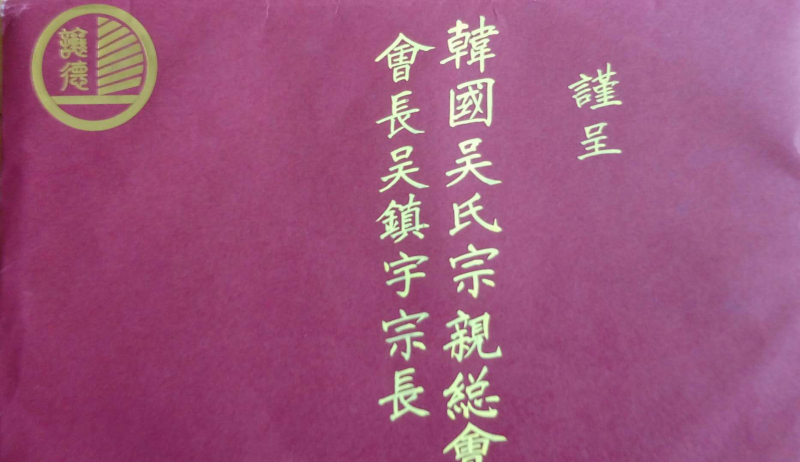 謹呈
韓國吴氏宗親総會
會長吴鎮宇宗長
讓德